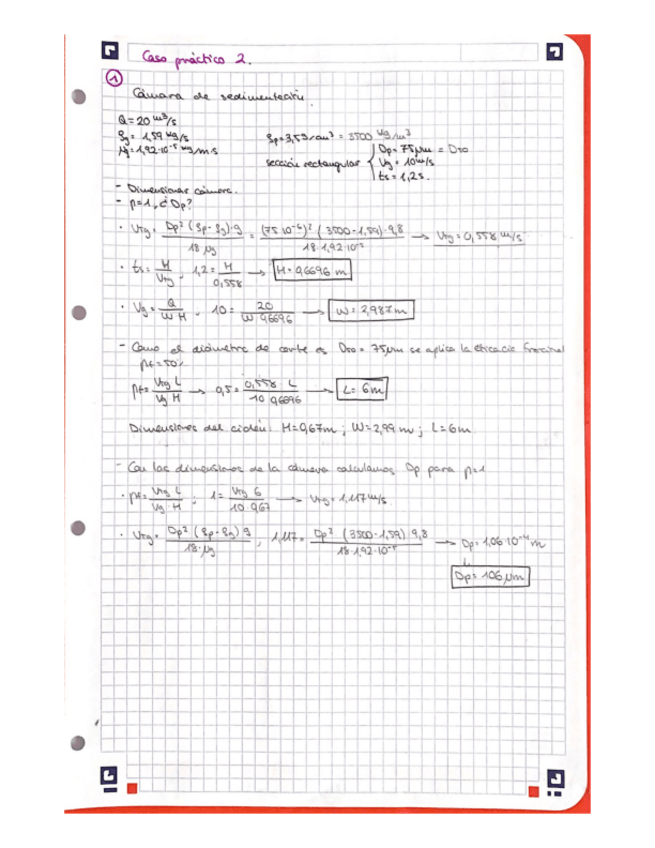 Caso práctico 2.
1
Cámara de sedimentación.
Q = 20 m³/s
ρg = 1,59 kg/s ρp = 3,5 g/cm³ = 3500 kg/m³
μg = 1,92·10⁻⁵ kg/m·s sección rectangular { Dp = 75 μm = D50
Vg = 10 m/s
ts = 1,2 s.
- Dimensionar cámara.
- η=1, ¿Dp?
· Vtg = Dp² (ρp - ρg)·g / 18 μg = (75·10⁻⁶)² (3500 - 1,59)·9,8 / 18·1,92·10⁻⁵ → Vtg = 0,558 m/s
· ts = H / Vtg , 1,2 = H / 0,558 → H = 0,6696 m
· Vg = Q / W H , 10 = 20 / W 0,6696 → W = 2,987 m
- Como el diámetro de corte es D50 = 75 μm se aplica la eficacia fraccional
ηf = 50%
ηf = Vtg L / Vg H → 0,5 = 0,558 · L / 10 · 0,6696 → L = 6m
Dimensiones del ciclón: H = 0,67m ; W = 2,99 m ; L = 6m
- Con las dimensiones de la cámara calculamos Dp para η=1
· ηf = Vtg L / Vg · H ; 1 = Vtg 6 / 10 · 0,67 → Vtg = 1,117 m/s
· Vtg = Dp² (ρp - ρg) g / 18·μg , 1,117 = Dp² (3500 - 1,59) 9,8 / 18·1,92·10⁻⁵ → Dp = 1,06·10⁻⁴ m
↓
Dp = 106 μm